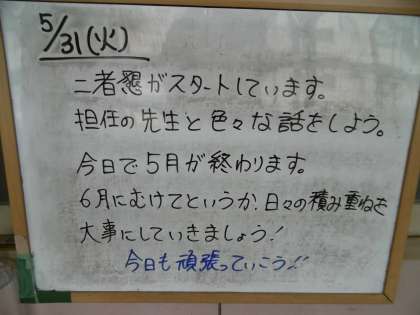 5/31(火)
二者懇がスタートしています。
担任の先生と色々な話をしよう。
今日で5月が終わります。
6月にむけてというか、日々の積み重ねを
大事にしていきましょう!
今日も頑張っていこう!!